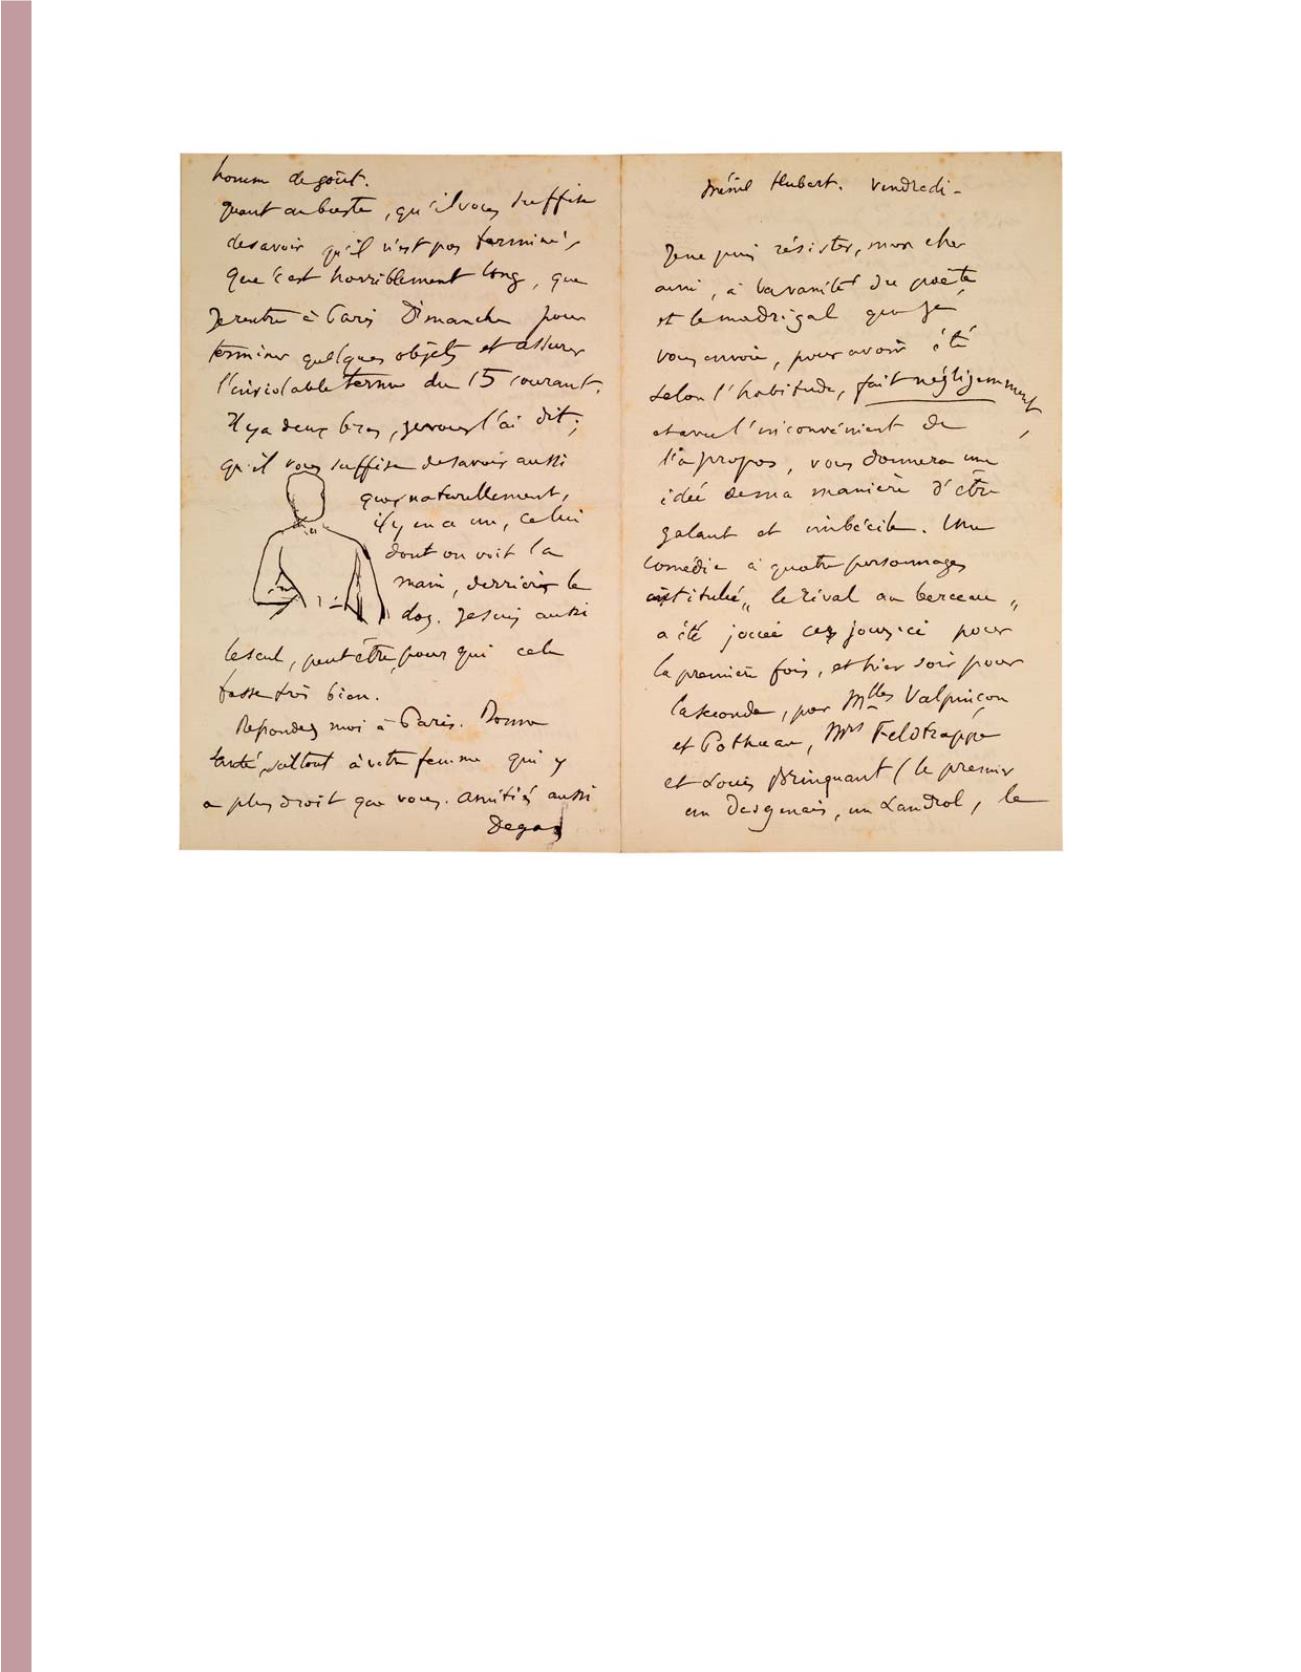 homme de goût.
Quant au buste, qu'il vous suffise
de savoir qu'il n'est pas terminé,
que c'est horriblement long, que
je rentre à Paris Dimanche pour
terminer quelques objets et assurer
l'inviolable terme du 15 courant.
Il y a deux bras, je vous l'ai dit;
qu'il vous suffise de savoir aussi
que, naturellement,
il y en a un, celui
dont on voit la
main, derrière le
dos. Je suis aussi
le seul, peut être, pour qui cela
fasse très bien.
Répondez moi à Paris. Bonne
santé, surtout à votre femme qui y
a plus droit que vous. Amitiés aussi
Degas
Ménil Hubert. Vendredi -
Je ne puis résister, mon cher
ami, à la vanité du poète
et le madrigal que je
vous envoie, pour avoir été
selon l'habitude, fait négligemment,
et avec l'inconvénient de
l'à propos, vous donnera une
idée de ma manière d'être
galant et imbécile. Une
comédie à quatre personnages
intitulée „ le rival au berceau „
a été jouée ces jours-ci pour
la première fois, et hier soir pour
la seconde, par Mlles Valpinçon
et Pothuau, Mrs Feldtrappe
et Louis Brinquant (le premier
un Desgenais, un Landrol, le